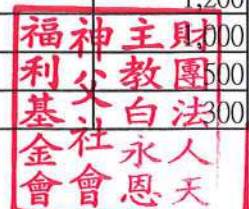 1,200
1,000
500
300
財團法人天
主教白永恩
神父社會
福利基金會